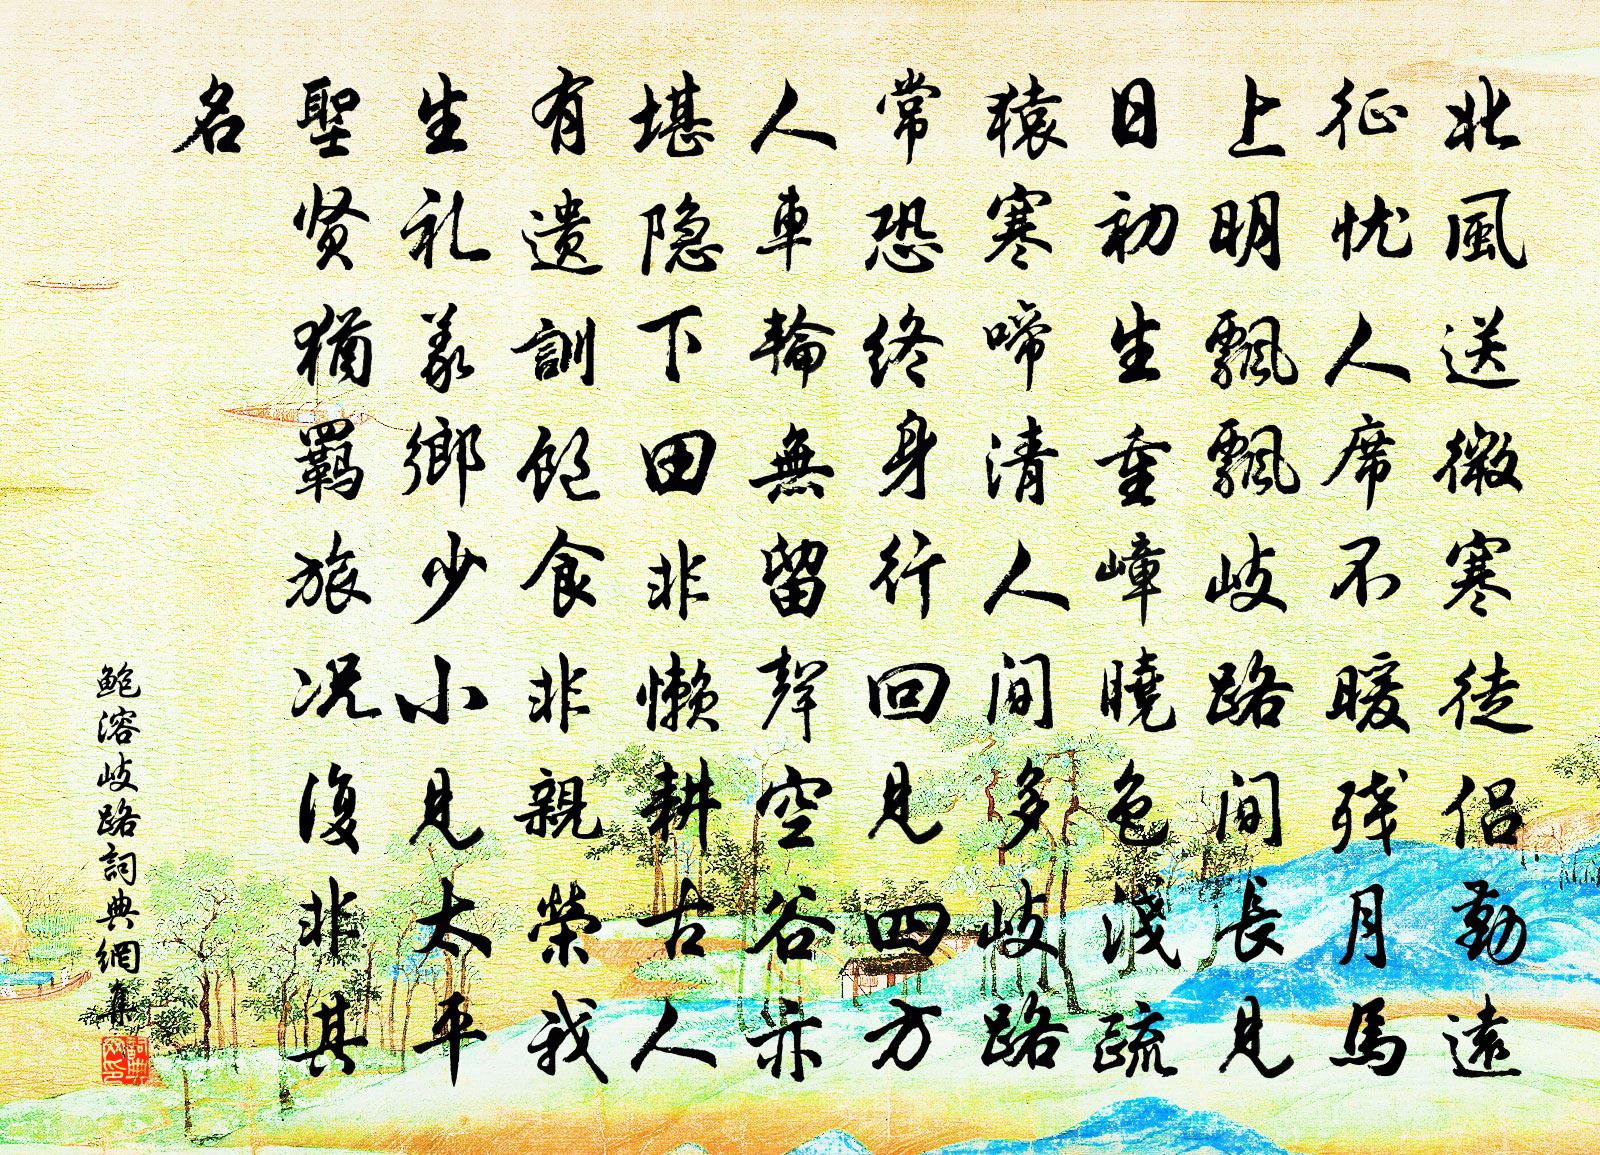 北風送微寒徒侣勤遠
征忧人席不暖残月馬
上明飄飄歧路间長見
日初生重嶂曉色淺疏
猿寒啼清人间多歧路
常恐终身行回見四方
人車輪無留聲空谷亦
堪隐下田非懒耕古人
有遗訓飽食非親榮我
生礼義鄉少小見太平
聖贤猶羈旅况復非其
名
鲍溶歧路詞典網集